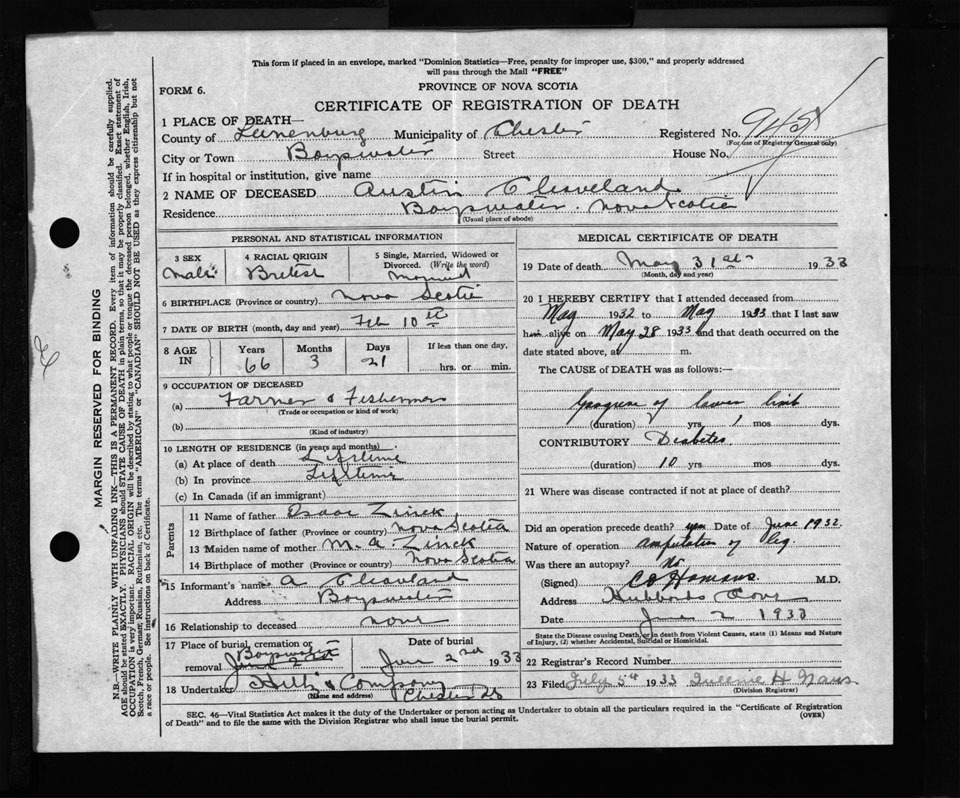 This form if placed in an envelope, marked "Dominion Statistics—Free, penalty for improper use, $300," and properly addressed
will pass through the Mail "FREE"
FORM 6.
PROVINCE OF NOVA SCOTIA
CERTIFICATE OF REGISTRATION OF DEATH
1 PLACE OF DEATH—
County of Lunenburg Municipality of Chester Registered No.
(For use of Registrar General only)
City or Town Bayswater Street House No.
If in hospital or institution, give name
2 NAME OF DECEASED Austin Cleaveland
Residence Bayswater Nova Scotia
(Usual place of abode)
PERSONAL AND STATISTICAL INFORMATION
3 SEX
Male
4 RACIAL ORIGIN
British
5 Single, Married, Widowed or
Divorced. (Write the word)
Married
6 BIRTHPLACE (Province or country) Nova Scotia
7 DATE OF BIRTH (month, day and year) Feb 10th
8 AGE IN
Years 66
Months 3
Days 21
If less than one day,
hrs. or min.
9 OCCUPATION OF DECEASED
(a) Farmer & Fisherman
(Trade or occupation or kind of work)
(b)
(Kind of industry)
10 LENGTH OF RESIDENCE (in years and months)
(a) At place of death Lifetime
(b) In province Lifetime
(c) In Canada (if an immigrant)
Parents
11 Name of father Isaac Zinck
12 Birthplace of father (Province or country) Nova Scotia
13 Maiden name of mother M. A. Zinck
14 Birthplace of mother (Province or country) Nova Scotia
15 Informant's name A Cleaveland
Address Bayswater
16 Relationship to deceased none
17 Place of burial, cremation or
removal Bayswater
June 2nd
Date of burial
June 2nd 1933
18 Undertaker Hiltz & Company
(Name and address) Chester NS
MEDICAL CERTIFICATE OF DEATH
19 Date of death May 31st 1933
(Month, day and year)
20 I HEREBY CERTIFY that I attended deceased from
May 1932 to May 1933 that I last saw
him alive on May 28 1933 and that death occurred on
date stated above, at m.
The CAUSE of DEATH was as follows:—
Gangrene of lower limb
(duration) yrs, 1 mos dys.
CONTRIBUTORY Diabetes
(duration) 10 yrs mos dys.
21 Where was disease contracted if not at place of death?
Did an operation precede death? yes Date of June 1932
Nature of operation amputation of leg
Was there an autopsy? No
(Signed) M.D.
Address Hubbards Cove
Date June 2 1933
State the Disease causing Death, or in death from Violent Causes, state (1) Means and Nature
of Injury, (2) whether Accidental, Suicidal or Homicidal.
22 Registrar's Record Number
23 Filed July 5th 1933
(Division Registrar)
SEC. 46—Vital Statistics Act makes it the duty of the Undertaker or person acting as Undertaker to obtain all the particulars required in the "Certificate of Registration
of Death" and to file the same with the Division Registrar who shall issue the burial permit.
(OVER)
MARGIN RESERVED FOR BINDING
N.B.—WRITE PLAINLY WITH UNFADING INK—THIS IS A PERMANENT RECORD. Every item of information should be carefully supplied.
AGE should be stated EXACTLY. PHYSICIANS should STATE CAUSE OF DEATH in plain terms, so that it may be properly classified. Exact statement of
OCCUPATION is very important. RACIAL ORIGIN will be described by stating to what people or tongue the deceased person belonged, whether English, Irish,
Scotch, French, German, Russian, Ruthenian, etc. The terms "AMERICAN" or "CANADIAN" SHOULD NOT BE USED as they express citizenship but not
a race or people. See instructions on back of Certificate.